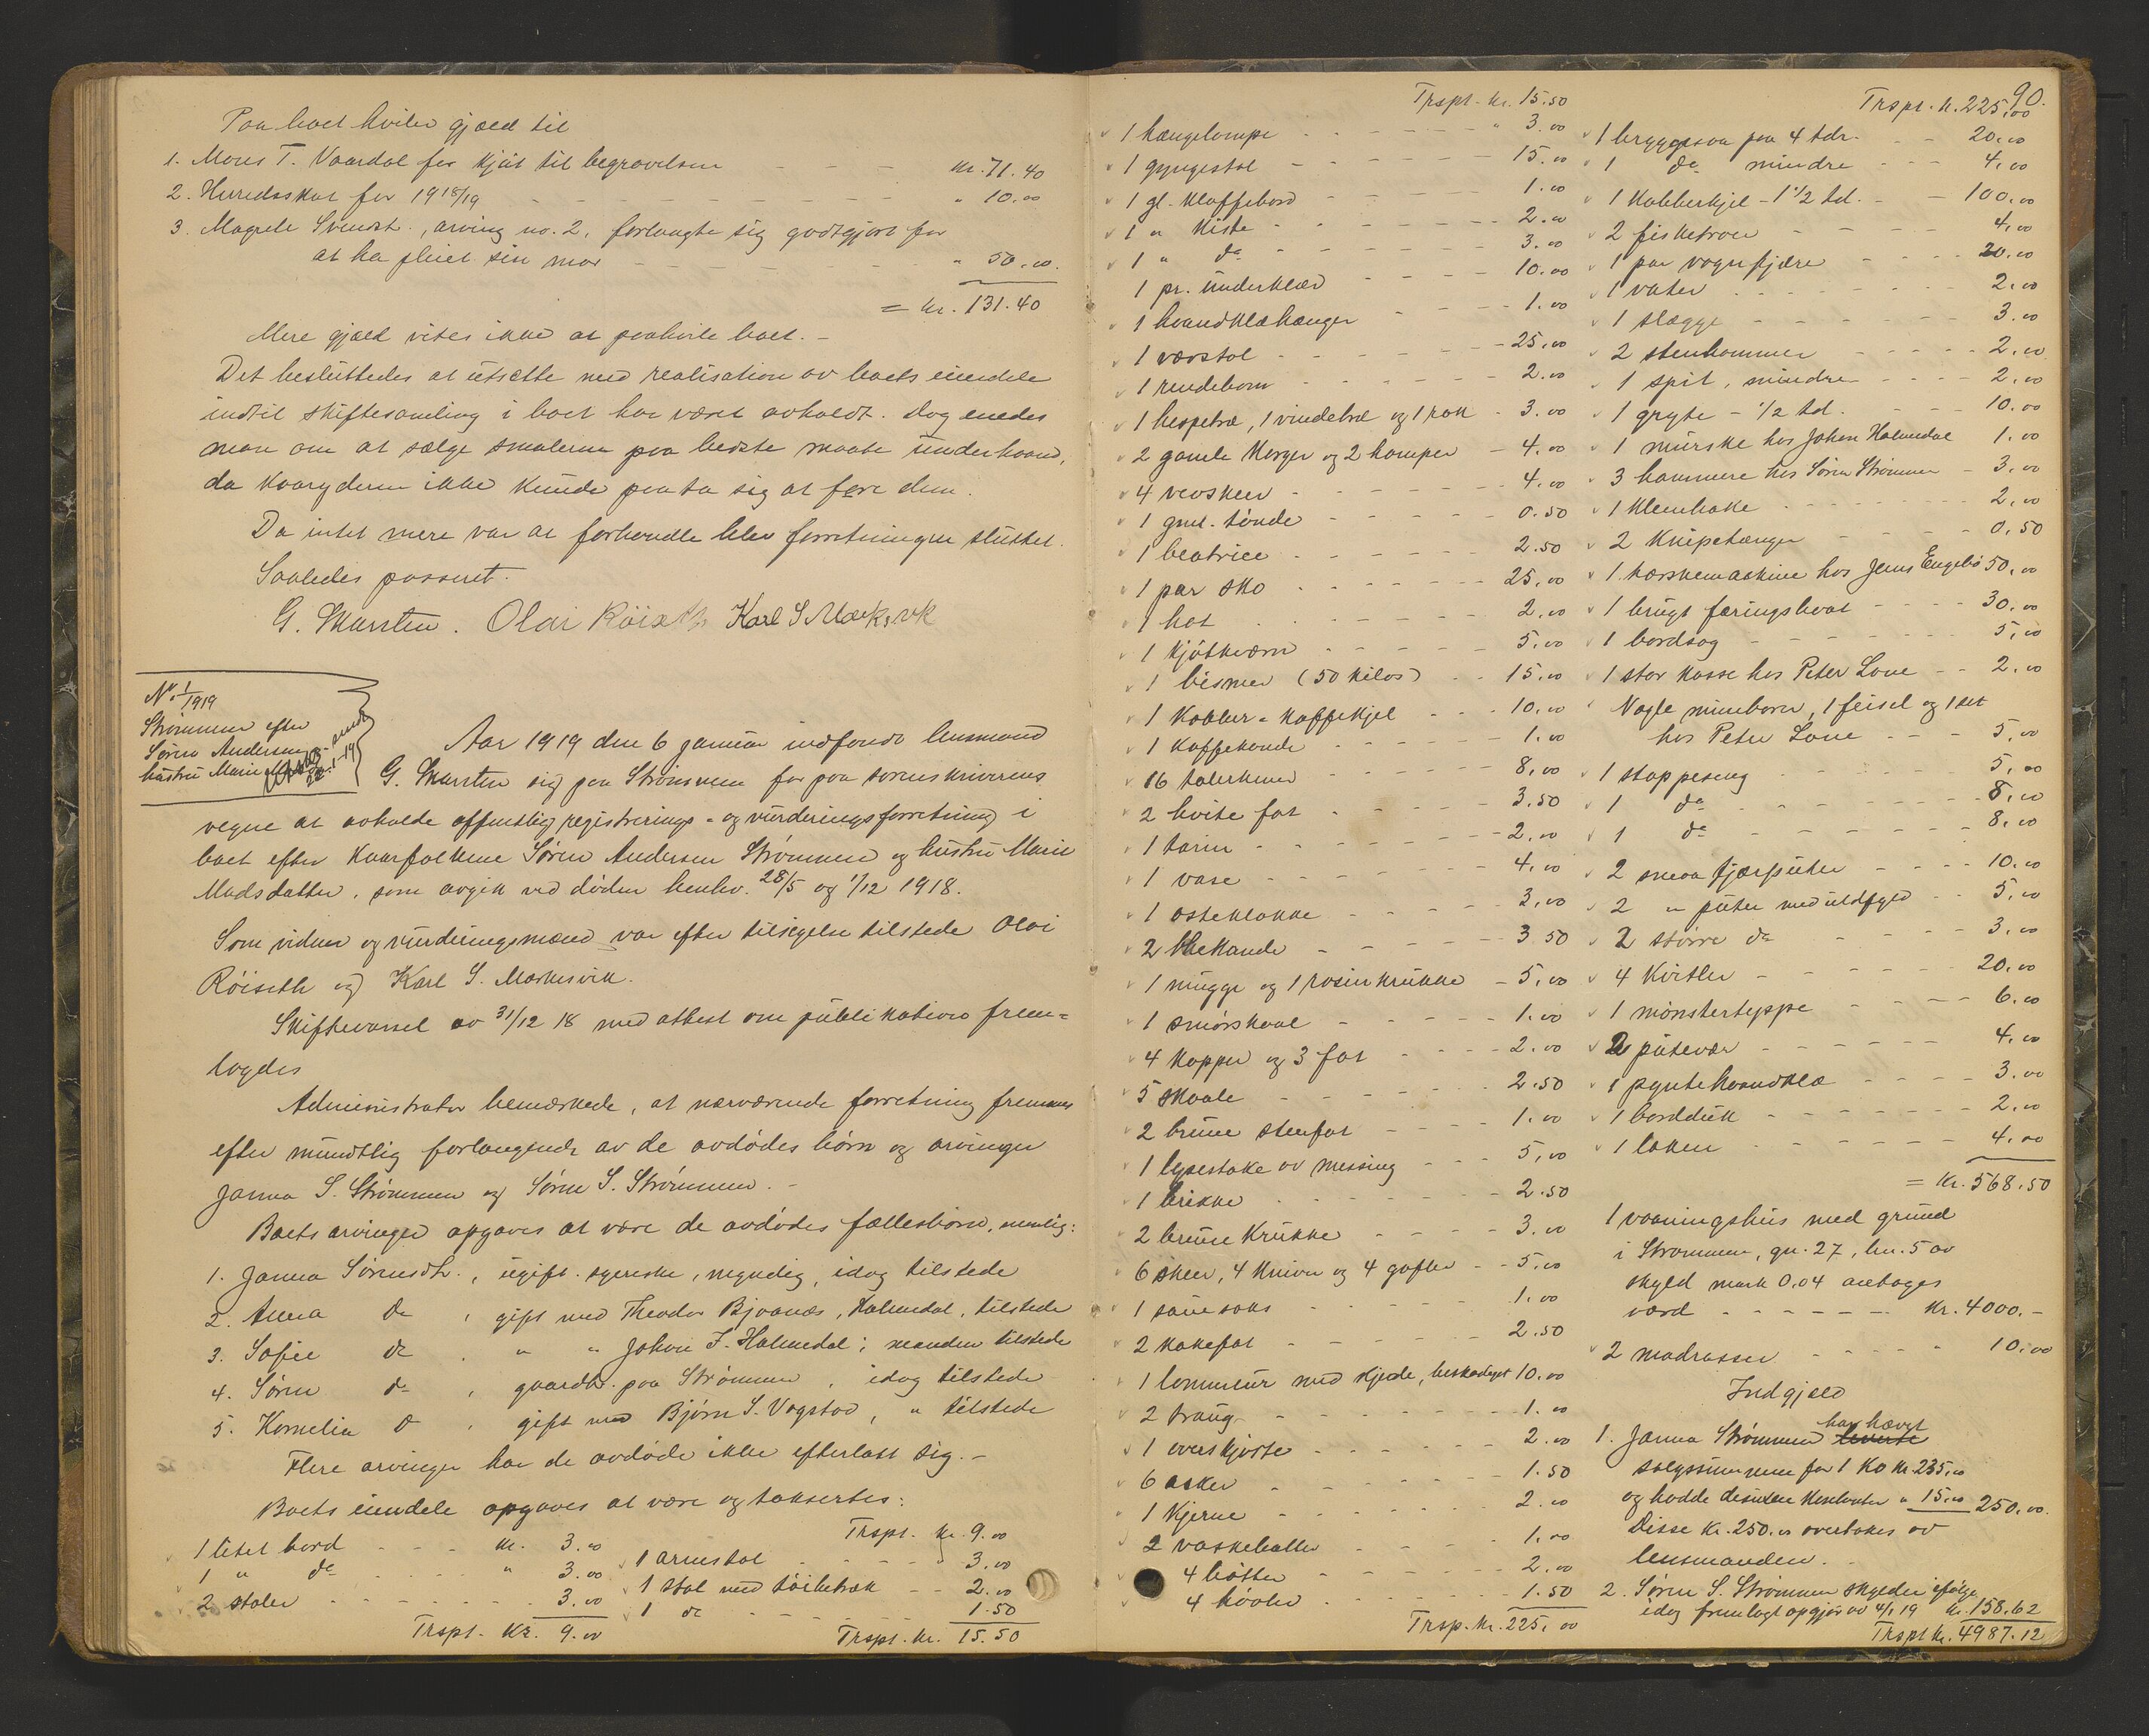 Paa boet hviler gjæld til
1. Mons T. Vaardal for kjøt til begravelsen - - - kr. 71.40
2. Herredsskat for 1918/19 - - - - - - - - " 10.00
3. Magrete Svendsd., arving no. 2, forlangte sig godtgjort for
at ha pleiet sin mor - - - - - - " 50.00.
= kr. 131.40
Mere gjæld vites ikke at paahvile boet. -
Det besluttedes at utsætte med realisation av boets eiendele
indtil skiftesamling i boet har været avholdt. Dog enedes
man om at sælge smalerne paa bedste maate underhaand,
da kaaryderen ikke kunde paata sig at fore dem.
Da intet mere var at forhandle blev forretningen sluttet.
Saaledes passeret.
G. Maursten. Olai Röiseth Karl S Mørkesvik
No. 1/1919
Strømmen efter
Søren Andersen og
hustru Marie
22-1-19
Aar 1919 den 6 januar indfandt lensmand
G. sig paa Strømmen for paa sorenskriverens
vegne at avholde offentlig registrerings- og vurderingsforretning i
boet efter kaarfolkene Søren Andersen Strømmen og hustru Marie
Madsdatter, som avgik ved døden henhv. 28/5 og 1/12 1918.
Som vidner og vurderingsmænd var efter tilsigelse tilstede Olai
Röiseth og Karl S. Mørkesvik.
Skiftevarsel av 31/12 18 med attest om publikation frem=
lagdes
Administrator bemærkede, at nærværende forretning fremmes
efter mundtlig forlangende av de avdødes børn og arvinger
Janna S. Strømmen og Søren S. Strømmen. -
Boets arvinger opgaves at være de avdødes fællesbørn, nemlig:
1. Janna Sørensdtr., ugift syerske, myndig, idag tilstede
2. Anna do , gift med Theodor Bjaanæs, Halmedal, tilstede
3. Sofie do . " " Johan J. Halmedal; manden tilstede
4. Søren do , gaardbr. paa Strømmen , idag tilstede
5. Kornelia do , gift med Bjørn S. Vagstad, " tilstede
Flere arvinger har de avdøde ikke efterlatt sig. -
Boets eiendele opgaves at være og taksertes:
1 litet bord - - - kr. 3.00
1 " do - - - " 3.00
2 stoler - - - - - 3.00
Trspt. kr. 9.00
Trspt. kr. 9.00
1 armstol - - - - 3.00
1 stol med tøibetræk - - 2.00
1 do - - - - 1.50
Trspt. kr. 15.50
Trspt. kr. 15.50
1 hængelampe - - - - - " 3.00
1 gyngestol - - - - - 15.00
1 gl. klaffebord - - - - 1.00
1 " kiste - - - - - 2.00
1 " do - - - - - 3.00
1 pr. underklær - - - - 10.00
1 haandklæhænger - - - 1.00
1 vævstol - - - - - 25.00
1 rendebom - - - - - 2.00
1 hespetræ, 1 vindetræ og 1 rok - 3.00
2 gamle korger og 2 kamper - 4.00
4 vevskeer - - - - - 4.00
1 gml. tønde - - - - - 0.50
1 beatrice - - - - - 2.50
1 par sko - - - - - 25.00
1 hat - - - - - 2.00
1 kjøtkværn - - - - - 5.00
1 bismer (50 kilos) - - 15.00
1 kobber-kaffekjel - - - 10.00
1 kaffekande - - - - - 1.00
16 talerkener - - - - - 8.00
2 hvite fat - - - - 3.50
1 tarin - - - - - 2.00
1 vase - - - - - 4.00
1 osteklokke - - - - 3.00
2 kande - - - - - 3.50
1 mugge og 1 rosinkrukke - 5.00
1 smørskaal - - - - 1.00
4 kopper og 3 fat - - - 2.00
5 skaale - - - - - 2.50
2 brune stenfat - - - - 1.00
1 lysestake av messing - - - 5.00
1 brikke - - - - - 2.50
2 brune krukke - - - - 3.00
6 skeer, 4 kniver og 4 gafler - - 5.00
1 sauesaks - - - - 1.00
2 kakefat - - - - - 2.50
1 lommeur med kjede, beskadiget 10.00
2 traug - - - - - 1.00
1 overskjorte - - - - 2.00
6 asker - - - - - 1.50
1 kjerne - - - - - 2.00
2 vaskeballer - - - - 1.00
4 bøtter - - - - - 2.00
4 høvler - - - - - 1.50
Trsp. kr. 225.00
90.
Trspt. kr. 225.00
1 bryggesaa paa 4 tdr. - - 20.00
1 do mindre - - - 4.00
1 kobberkjel - 1 1/2 td. - - 100.00
2 fisketroer - - - - 4.00
1 par vognfjære - - - - 20.00
1 vater - - - - - 2.00
1 slægge - - - - - 3.00
2 stenhammer - - - - 2.00
1 spit, mindre - - - - 2.00
1 gryte - 1/2 td. - - - 10.00
1 murske hos Johan Halmedal 1.00
3 hammere hos Søren Strømmen - 3.00
1 klemhake - - - - 2.00
2 knipetænger - - - - 0.50
1 tærskemaskine hos Jens Engebø 50.00
1 brugt færingsbaat - - - - 30.00
1 bordsag - - - - - 5.00
1 stor kasse hos Peter Lone - - 2.00
Nogle mineborer, 1 feisel og 1 set
hos Peter Lone - - - 5.00
1 stoppeseng - - - - 5.00
1 do - - - - - 8.00
1 do - - - - - 8.00
2 smaa fjærputer - - - - 10.00
2 " puter med uldfyld - - 5.00
2 større do - - - - 3.00
4 kvitler - - - - - 20.00
1 mønstertæppe - - - - 6.00
2 putevar - - - - - 4.00
1 pyntehaandklæ - - - - 3.00
1 bordduk - - - - - 2.00
1 laken - - - - - 4.00
= kr. 568.50
1 vaaningshus med grund
i Strømmen, gn. 27, bn. 5 av
skyld mark 0.04 antages
værd - - - - - kr. 4000.-
2 madrasser - - - - - 10.00
Indgjæld
har hævet
1. Janna Strømmen leverte
salgssummen for 1 ko kr. 235.00
og hadde desuten " 15.00 250.00.
Disse kr. 250.00 overtokes av
lensmanden. -
2. Søren S. Strømmen skylder ifølge
idag fremlagt opgjør av 4/1 19 kr. 158.62
Trspt kr. 4987.12